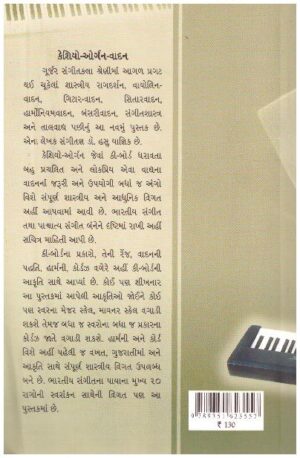 કેશિયો-ઓર્ગન-વાદન
ગૂર્જર સંગીતકલા શ્રેણીમાં આગળ પ્રગટ
થઈ ચૂકેલાં શાસ્ત્રીય રાગદર્શન, વાયોલિન-
વાદન, ગિટાર-વાદન, સિતારવાદન,
હાર્મોનિયમવાદન, બંસરીવાદન, સંગીતશાસ્ત્ર
અને તાલવાદ્ય પછીનું આ નવમું પુસ્તક છે.
એના લેખક સંગીતજ્ઞ ડૉ. હસુ યાજ્ઞિક છે.
કેશિયો-ઓર્ગન જેવાં કી-બોર્ડ ધરાવતા
બહુ પ્રચલિત અને લોકપ્રિય એવા વાદ્યના
વાદનનાં જરૂરી અને ઉપયોગી બધાં જ અંગો
વિશે સંપૂર્ણ શાસ્ત્રીય અને આધુનિક વિગત
અહીં આપવામાં આવી છે. ભારતીય સંગીત
તથા પાશ્ચાત્ય સંગીત બંનેને દૃષ્ટિમાં રાખી અહીં
સચિત્ર માહિતી આપી છે.
કી-બોર્ડના પ્રકારો, તેની રેંજ, વાદનની
પદ્ધતિ, હાર્મની, કોર્ડઝ વગેરે અહીં કી-બોર્ડની
આકૃતિ સાથે આપ્યાં છે. કોઈ પણ શીખનાર
આ પુસ્તકમાં આપેલી આકૃતિઓ જોઈને કોઈ
પણ સ્વરના મેજર સ્કેલ, માયનર સ્કેલ વગાડી
શકશે તેમજ બધા જ સ્વરોના બધા જ પ્રકારના
કોર્ડઝ જાતે વગાડી શકશે. હાર્મની અને કોર્ડ
વિશે અહીં પહેલી જ વખત, ગુજરાતીમાં અને
આકૃતિ સાથે સંપૂર્ણ શાસ્ત્રીય વિગત ઉપલબ્ધ
બને છે. ભારતીય સંગીતના પાયાના મુખ્ય ૨૦
રાગોની સ્વરાંકન સાથેની વિગત પણ આ
પુસ્તકમાં છે.
₹ 130